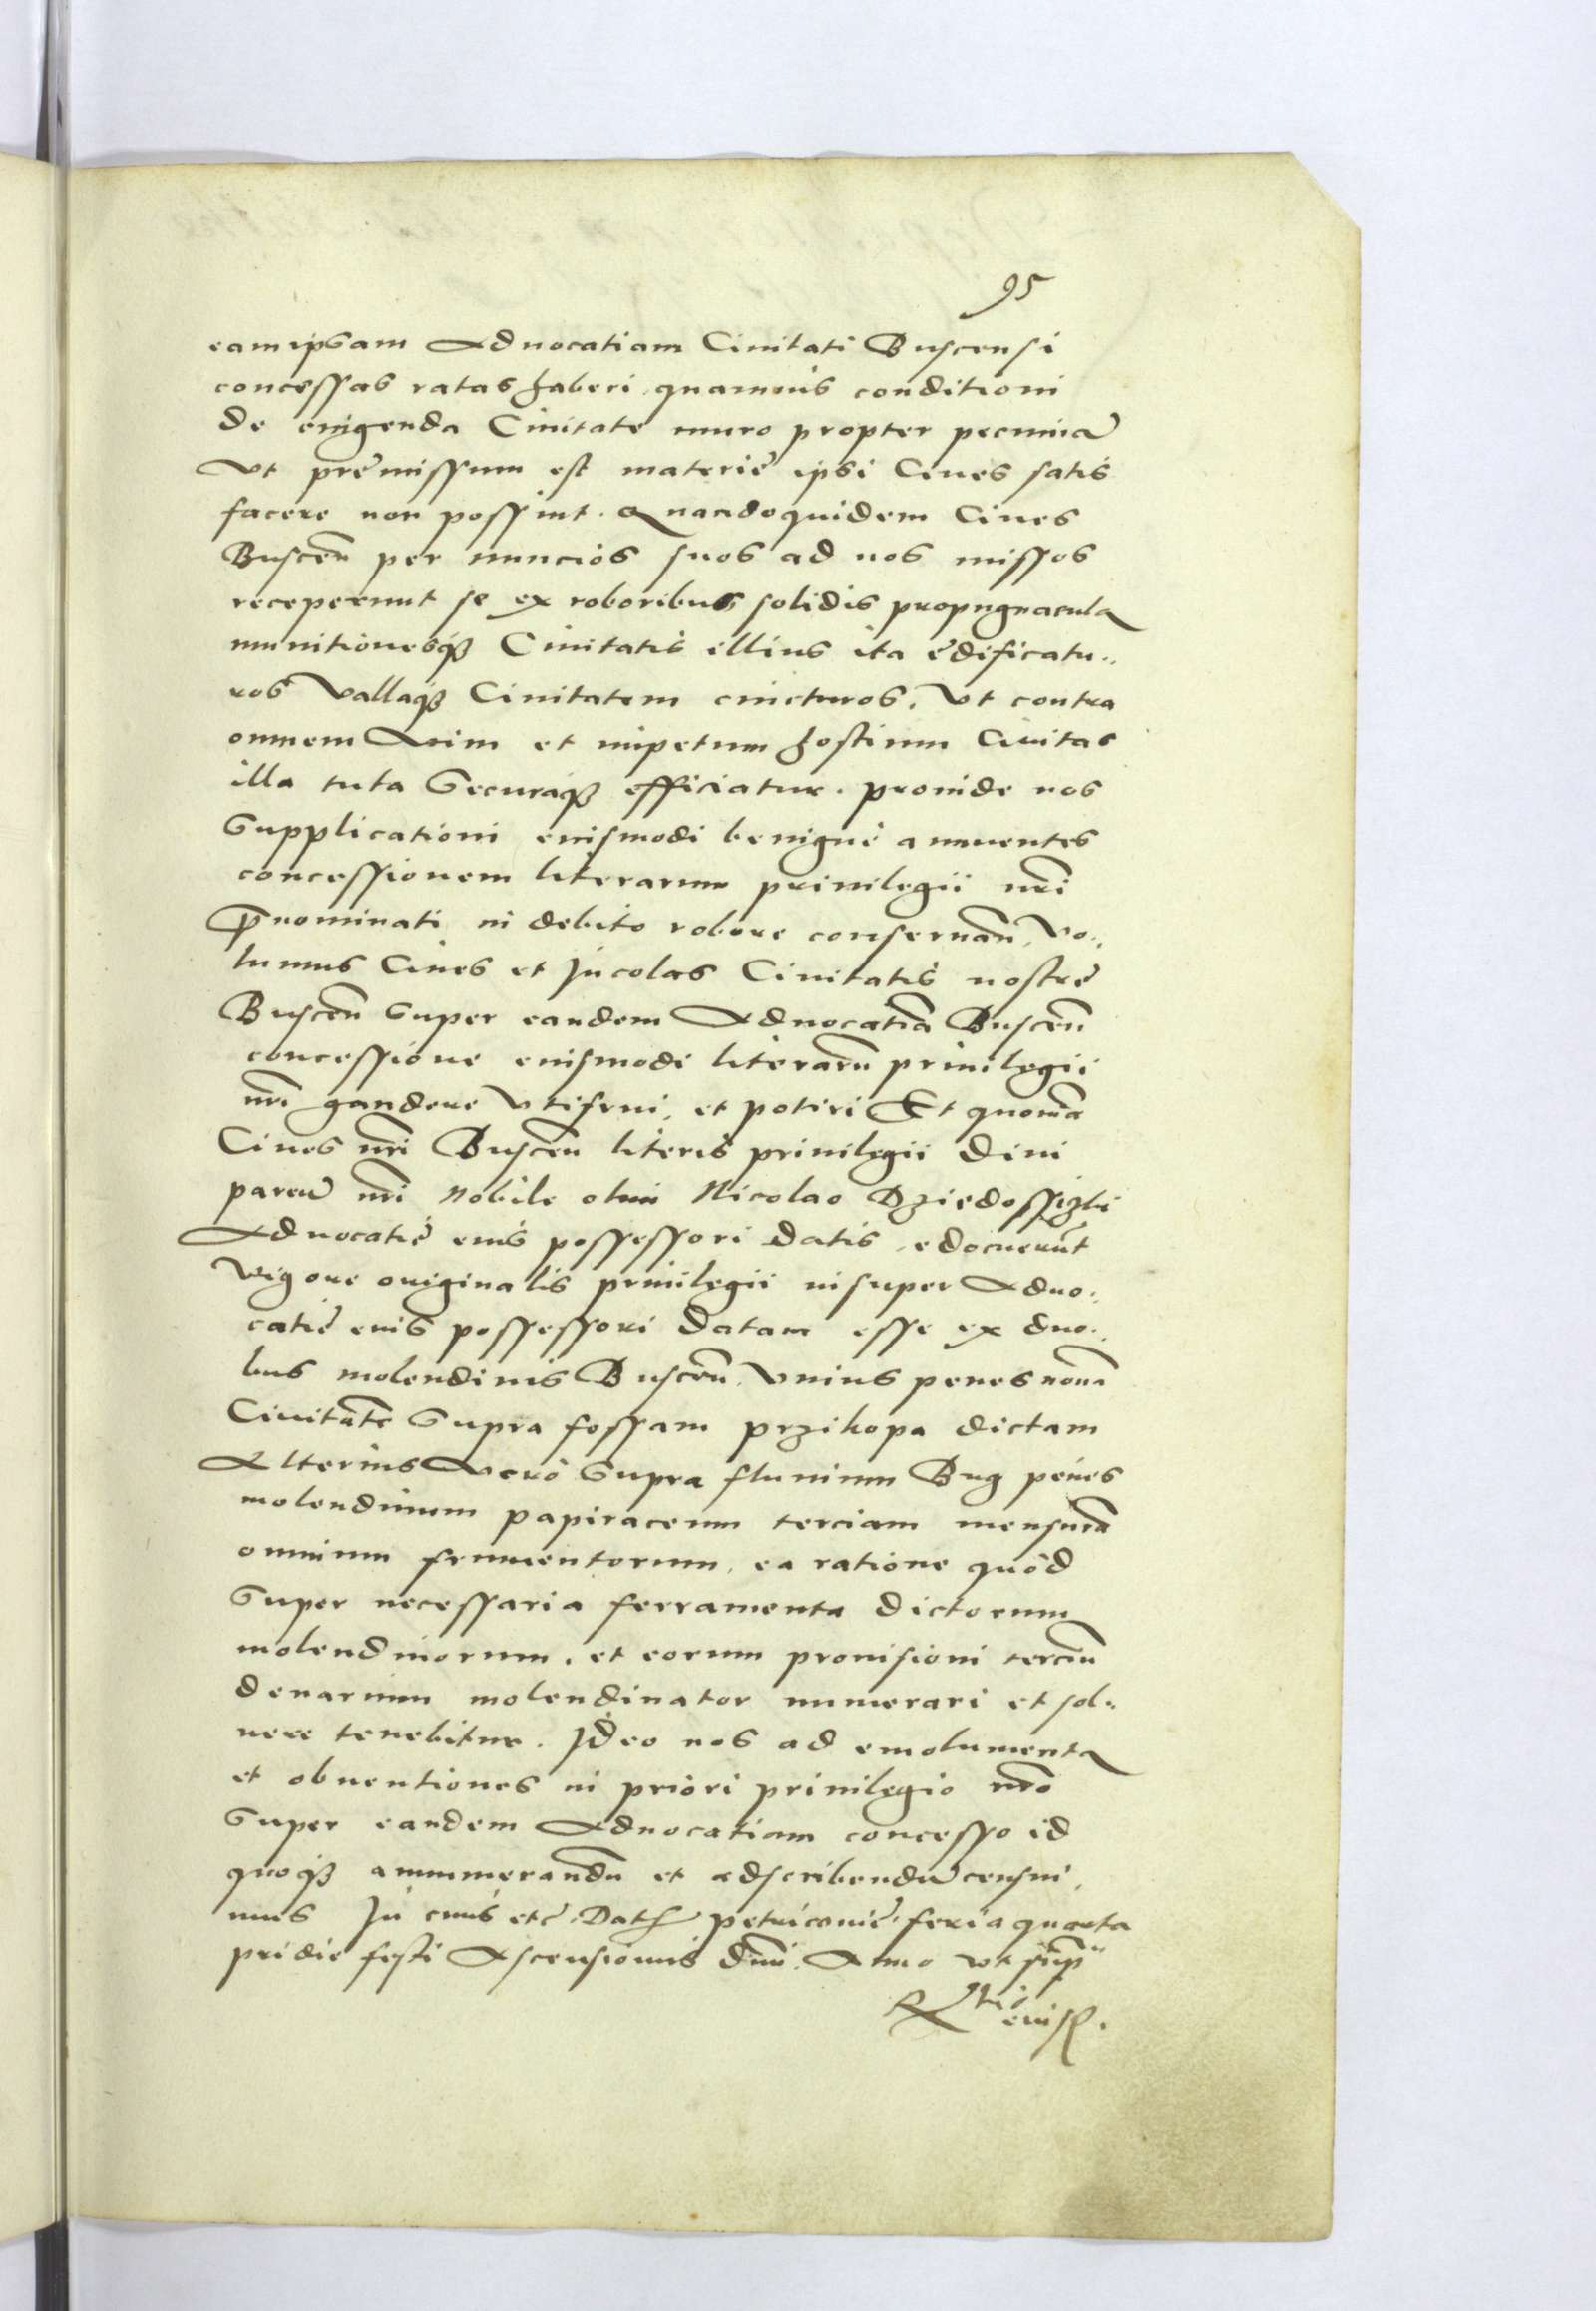 95
eam ipsam Aduocatiam Ciuitati Buscensi
concessas ratas haberi quamuis conditioni
de cingenda Ciuitate muro propter pecuniā
Vt premissum est materię ipsi Ciues satis
facere non possint. Quandoquidem Ciues
Buscen̄ per nuncios suos ad nos missos
receperunt se ex roboribus solidis propugnacula
munitionesq3 Ciuitatis illius ita ędificatu..
ros Vallaq3 Ciuitatem cincturos, Vt contra
omnem Vim et impetum hostium Ciuitas
illa tuta Securaq3 efficiatur. proinde nos
Supplicationi eiusmodi benignè annuentes
concessionem literarum priuilegii nr̄i
p̄nominati in debito robore conseruan̄. Vo..
lumus Ciues et Incolas Ciuitatis nostrę
Buscen̄ Super eandem Aduocatiā Buscen̄
concessione eiusmodi literarū priuilegii
nr̄i gaudere Vtifrui, et potiri Et quoniā
Ciues nr̄i Buscen̄ literis priuilegii Diui
paren̄ nr̄i Nobile olim Nicolao
Aduocatię eius possessori Datis, edocuerūt
Vigore originalis priuilegii insuper Aduo..
catię eius possessori Datam esse ex duo..
bus molendinis Buscen̄, Vnius penes nouā
Ciuitatē Supra fossam przikopa dictam
Alterius Verò Supra fluuium Bug penes
molendinum papiraceum terciam mensurā
omnium frumentorum, ea ratione quòd
Super necessaria ferramenta dictorum
molendinorum, et eorum prouisioni terciū
denarium molendinator numerari et sol..
uere tenebitur. Ideo nos ad emolumenta
et obuentiones in priori priuilegio nr̄o
Super eandem Aduocatiam concesso id
quoq3 annumerandū et adscribendū censui,
mus In cuius etc̄. Dat petricouię feria quarta
pridie festi Ascensionis dn̄i. Anno Vt sup̄